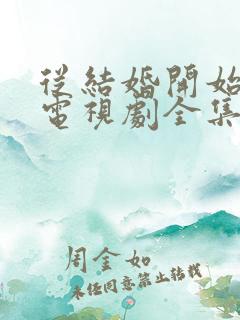 從結婚開始
電視劇全集
周金如
未经同意禁止转载